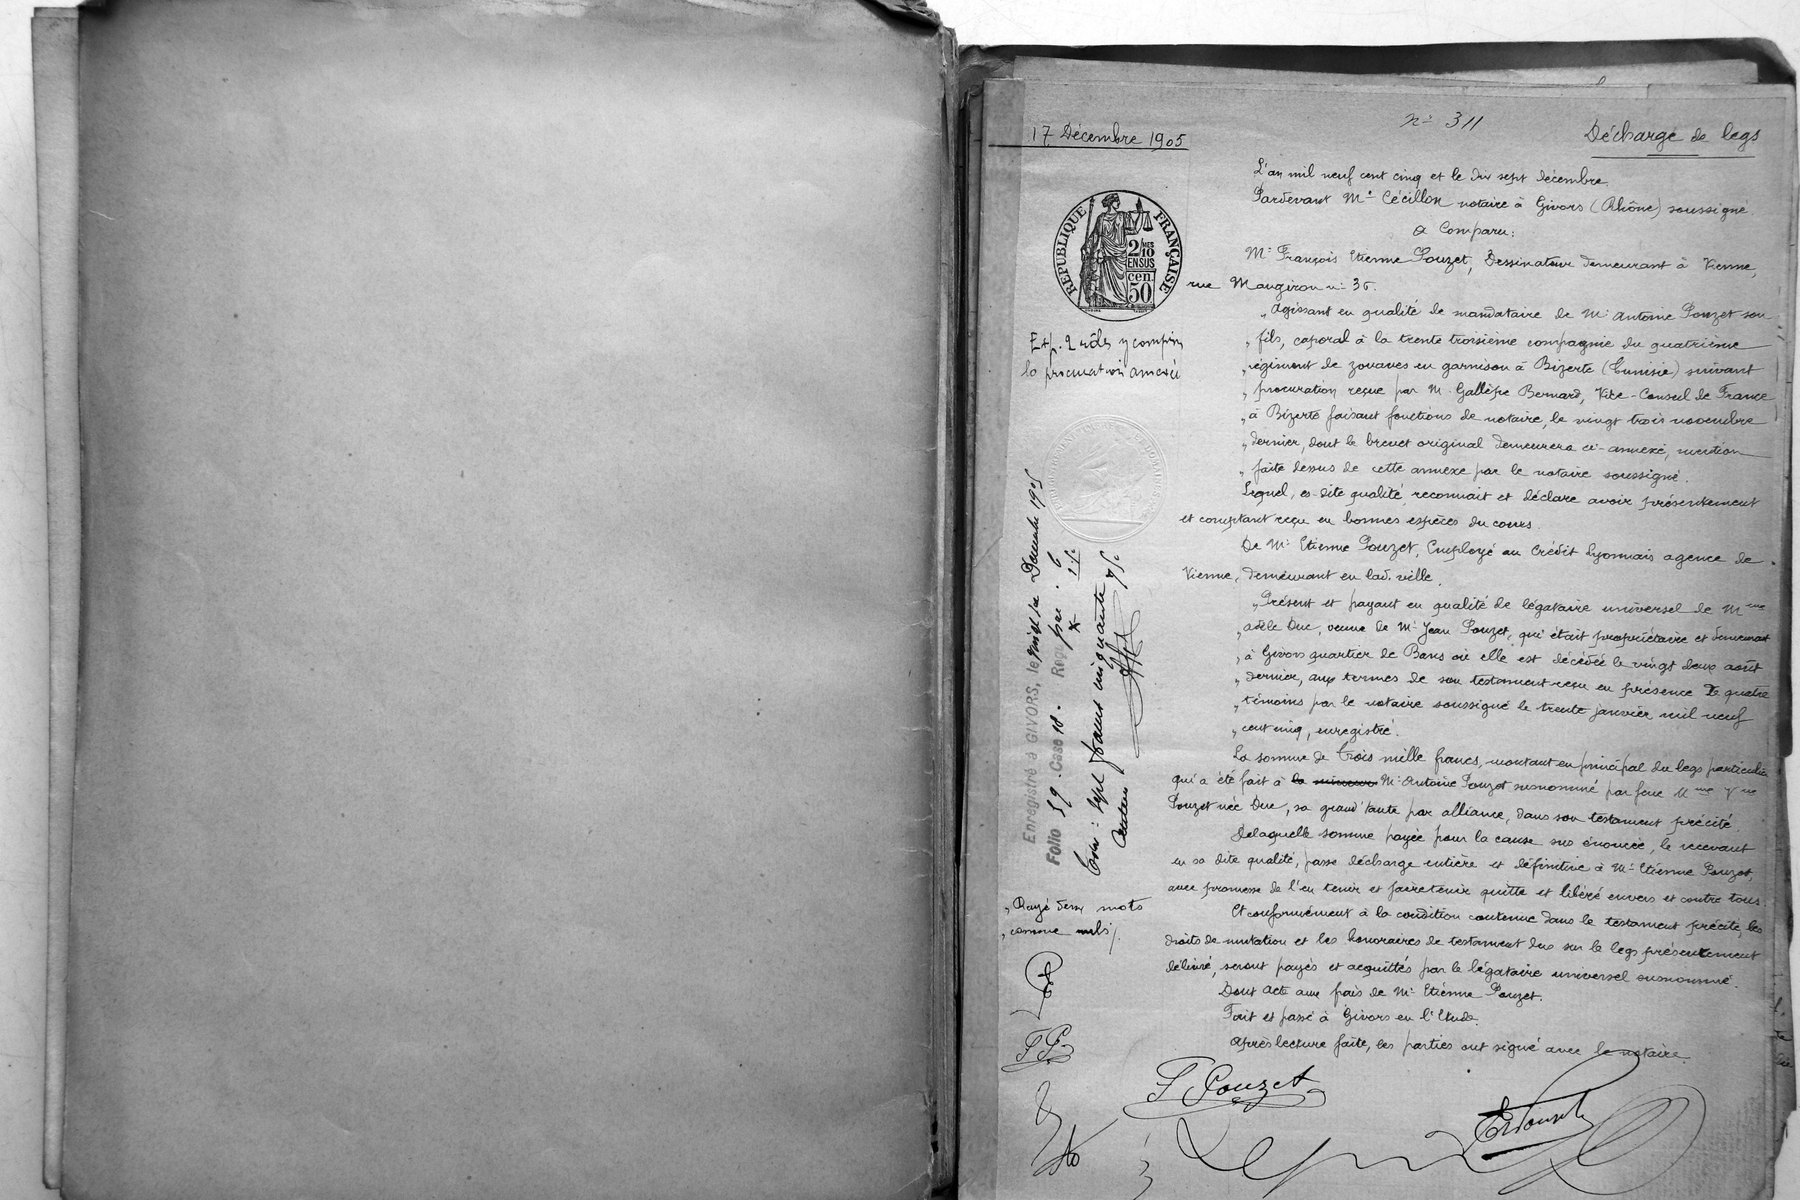 17 Décembre 1905
n° 311
Décharge de legs
L'an mil neuf cent cinq et le dix sept décembre.
Pardevant Me Cécillon notaire à Givors (Rhône) soussigné.
a Comparu:
Mr François Etienne Pouzet, Dessinateur demeurant à Vienne,
rue Maugiron n° 36.
„ Agissant en qualité de mandataire de Mr Antoine Pouzet son
„ fils, caporal à la trente troisième compagnie du quatrième
„ régiment de zouaves en garnison à Bizerte (Tunisie) suivant
„ procuration reçue par M. Gallèpe Bernard, Vice-Consul de France
„ à Bizerte faisant fonctions de notaire, le vingt trois novembre
„ dernier, dont le brevet original demeurera ci-annexé, mention
„ faite dessus de cette annexe par le notaire soussigné.
Lequel, es-dite qualité, reconnait et déclare avoir présentement
et comptant reçu en bonnes espèces du cours.
De Mr Etienne Pouzet, Employé au Crédit Lyonnais agence de
Vienne, demeurant en lad. ville.
„ Présent et payant en qualité de légataire universel de Mme
„ Adèle Duc, veuve de Mr Jean Pouzet, qui était propriétaire et demeurant
„ à Givors quartier de Bans où elle est décédée le vingt deux août
„ dernier, aux termes de son testament reçu en présence de quatre
„ témoins par le notaire soussigné le trente janvier mil neuf
„ cent cinq, enregistré.
La somme de Trois mille francs, montant en principal du legs particulier
qui a été fait à Mr Antoine Pouzet susnommé par feue Mme Vve
Pouzet née Duc, sa grand'tante par alliance, dans son testament précité.
Delaquelle somme payée pour la cause sus énoncée, le recevant
en sa dite qualité, passe décharge entière et définitive à Mr Etienne Pouzet,
avec promesse de l'en tenir et faire tenir quitte et libéré envers et contre tous.
Et conformément à la condition contenue dans le testament précité, les
droits de mutation et les honoraires de testament dus sur le legs présentement
délivré, seront payés et acquittés par le légataire universel susnommé.
Dont acte aux frais de Mr Etienne Pouzet.
Fait et passé à Givors en l'Etude.
Après lecture faite, les parties ont signé avec le notaire.
F Pouzet
REPUBLIQUE FRANÇAISE
2/10MES
EN SUS
cen.
50
Exp. 2 rôles y compris
la procuration annexée
Enregistré à GIVORS, le Décembre 1905
Folio 59. Case 18. Reçu
sept francs cinquante
„ Rayé deux mots
„ comme nuls
F P